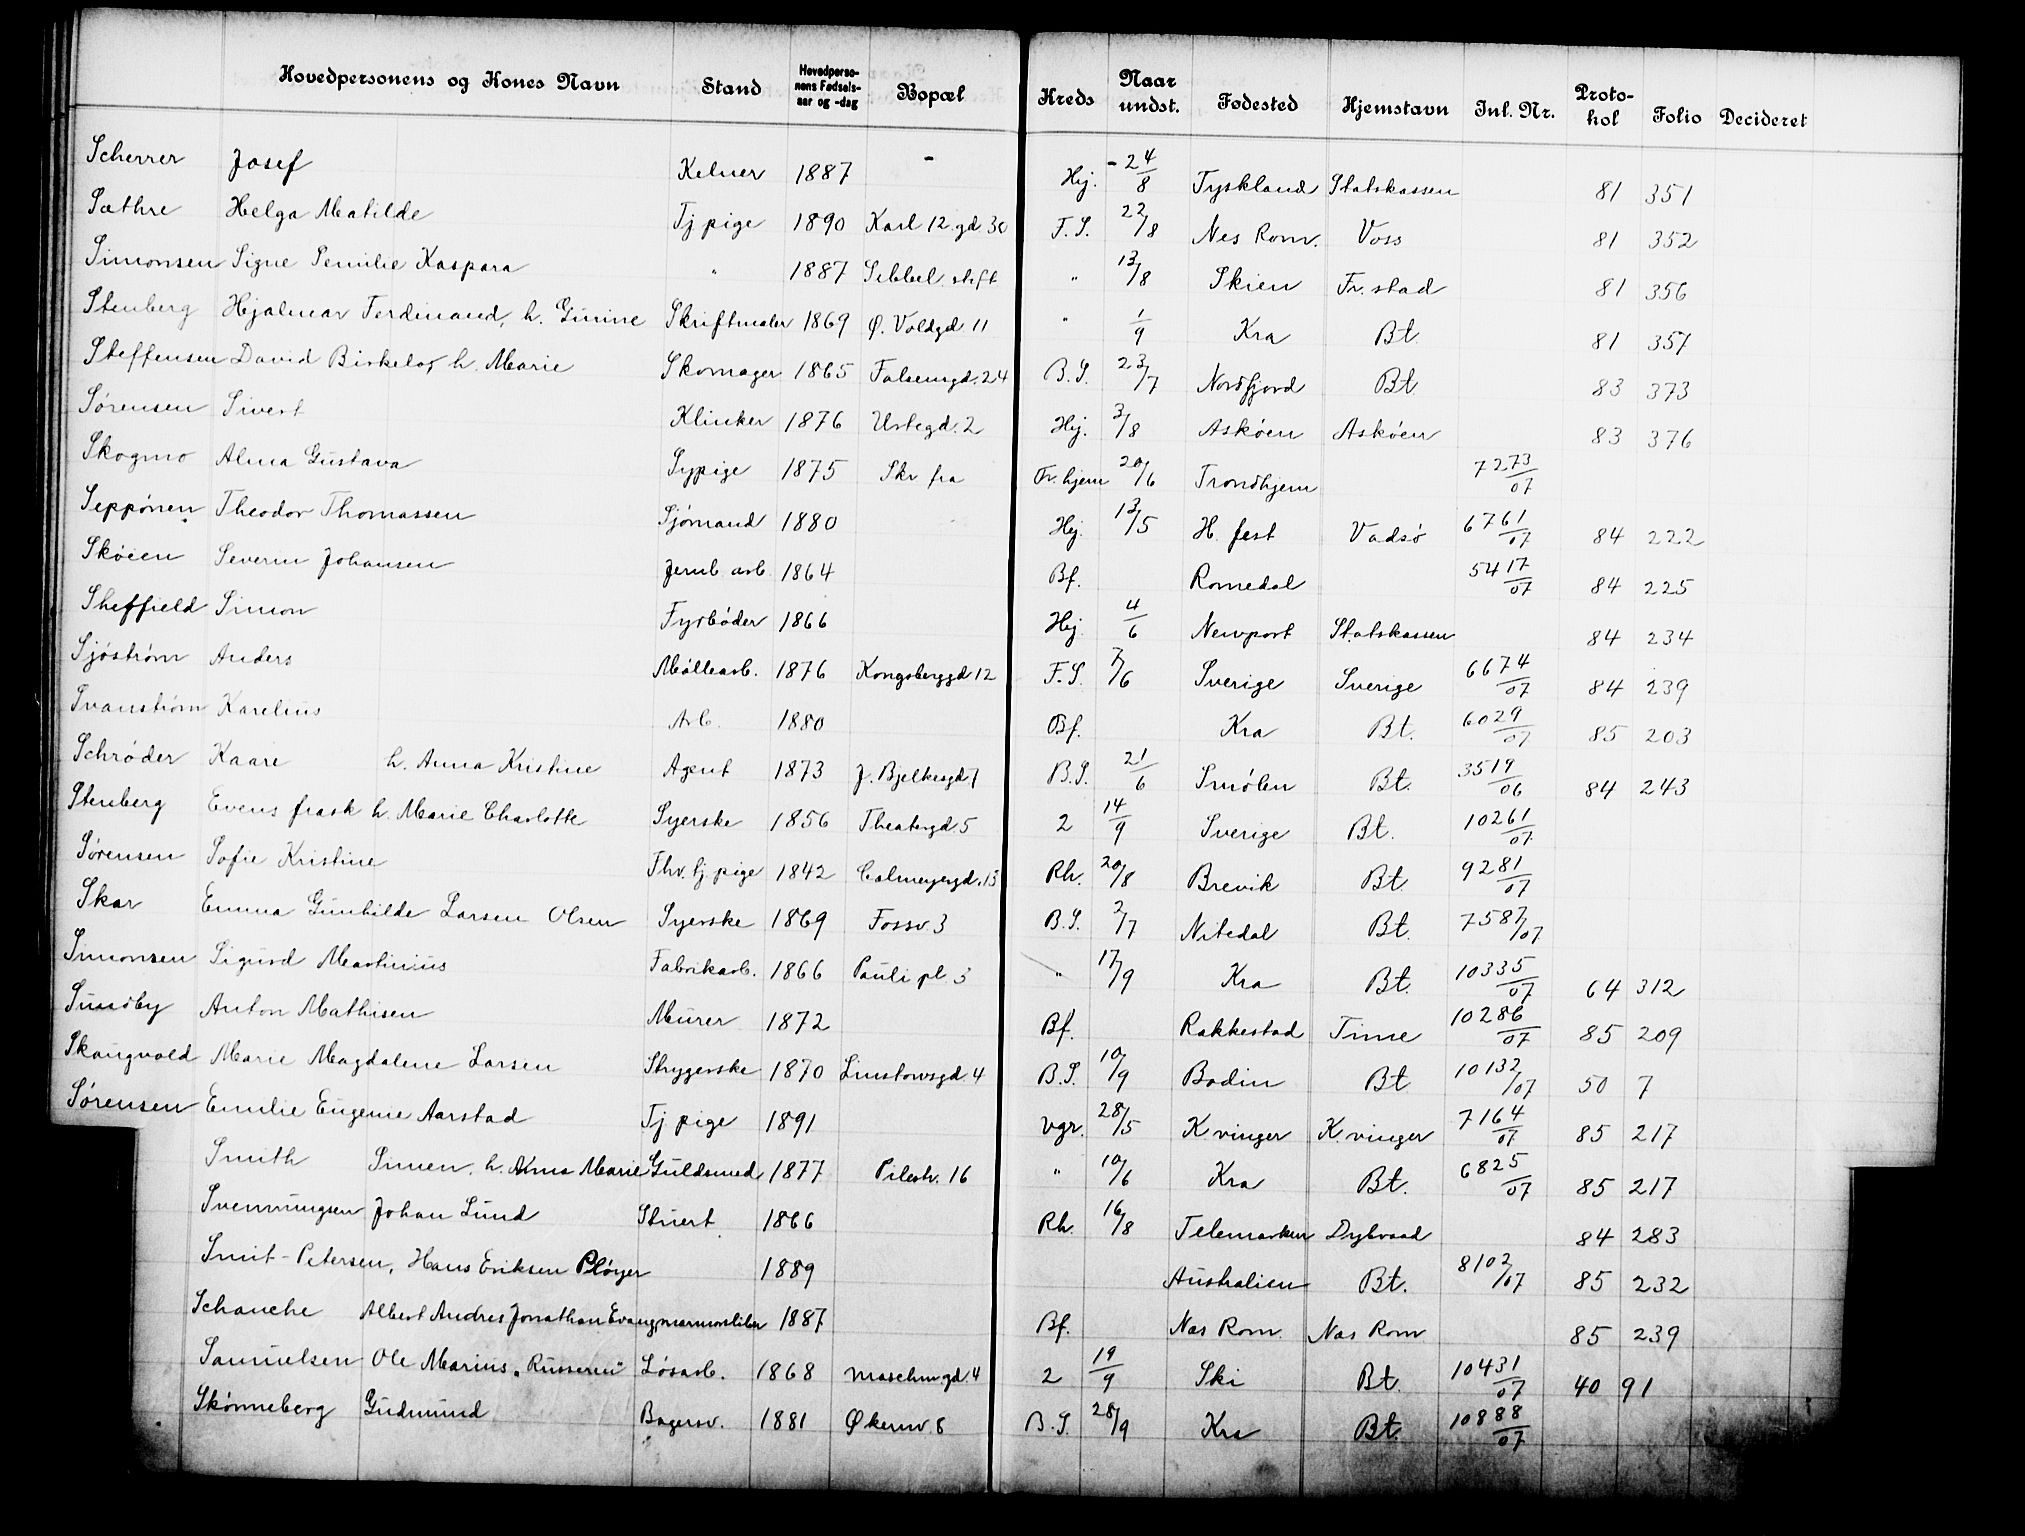 Hovedpersonens og Kones Navn Stand Hovedpersonens Fødselsaar og -dag Bopæl Kreds Naar undst. Fødested Hjemstavn Inl. Nr. Protokol Folio Decideret
Scherrer Josef Kelner 1887 - Hej. - 24/8 Tyskland Statskassen 81 351
Sæthre Helga Matilde Tj pige 1890 Karl 12. gd 30 F. S. 22/8 Nes Rom. Voss 81 352
Simonsen Signe Semilie Kaspara " 1887 Sibbel. stift " 13/8 Skien Fr. stad 81 356
Stenberg Hjalmar Ferdinand, h. Gunine Skriftmaler 1869 Ø. Voldgd 11 " 1/9 Kra Bt. 81 357
Steffensen David Birkelo, h. Marie Skomager 1865 Falsensgd. 24 B. S. 23/7 Nordfjord Bt. 83 373
Sørensen Sivert Klinker 1876 Urtegd. 2 Hej. 3/8 Askøen Askøen 83 376
Skogmo Alma Gustava Sypige 1875 Skr fra Fr. hjem 20/6 Trondhjem 7273/07
Seppønen Theodor Thomassen Sjømand 1880 Hej. 13/5 H. fest Vadsø 6761/07 84 222
Skøien Severin Johansen Jernb. arb. 1864 Bf. Romedal 5417/07 84 225
Sheffield Simon Fyrbøder 1866 Hej. 4/6 Newport Statskassen 84 234
Sjøstrøm Anders Møllearb. 1876 Kongsberggd 12 F. S. 7/6 Sverige Sverige 6674/07 84 239
Svanstrøm Karelius Arb. 1880 Bf. Kra Bt. 6029/07 85 203
Schrøder Kaare h. Anna Kristine Agent 1873 J. Bjelkesgd 7 B. S. 21/6 Smølen Bt. 3519/06 84 243
Stenberg Evens frask h. Marie Charlotte Syerske 1856 Theatergd 5 2 14/9 Sverige Bt. 10261/07
Sørensen Sofie Kristine Fhv. tj. pige 1842 Calmeyergd. 13 Rh. 20/8 Brevik Bt. 9281/07
Skar Emma Gunhilde Larsen Olsen Syerske 1869 Fossv. 3 B. S. 2/7 Nitedal Bt. 7587/07
Simonsen Sigurd Martinius Fabrikarb. 1866 Pauli pl. 3 " 17/9 Kra Bt. 10335/07 64 312
Sundby Anton Mathisen Murer 1872 Bf. Rakkestad Time 10286/07 85 209
Skaugvold Marie Magdalene Larsen Strygerske 1870 Linstowsgd. 4 B. S. 10/9 Bodin Bt. 10132/07 50 7
Sørensen Emilie Eugenie Aarstad Tj pige 1891 Vgr. 28/5 K vinger K. vinger 7164/07 85 217
Smith Simen, h. Anna Marie Guldsmed 1877 Pilestr. 16 " 10/6 Kra Bt. 6825/07 85 217
Svenningsen Johan Lund Stuert 1866 Rh. 16/8 Telemarken Dybvaad 84 283
Smit-Petersen, Hans Eriksen Pløyer 1889 Australien Bt. 8102/07 85 232
Schanche Albert Andres Jonathan 1887 Bf. Næs Rom. Næs Rom 85 239
Samuelsen Ole Marius „Russeren" Løsarb. 1868 Maschingd. 4 2 19/9 Ski Bt. 10431/07 40 91
Skønneberg Gudmund Bagersv. 1881 Økernv. 8 B. S. 28/9 Kra Bt. 10888/07